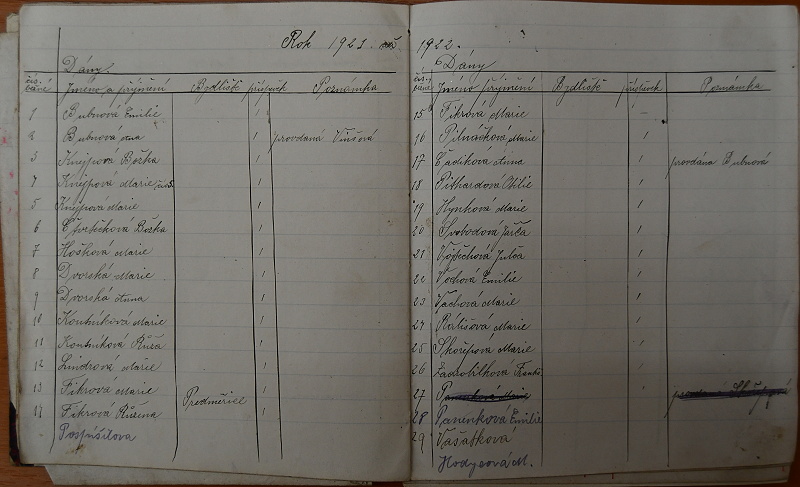 Rok 1923.
Dámy.
Jméno a příjmení Bydliště příspěvk Poznámka
1 Bubnová Emilie
2 Bubnová Anna provdaná
3 Knejpová Božka
4 Knejpová Marie
5 Knejpová Marie
6 Čtvrtečková Božka
7 Hošková Marie
8 Dvorská Marie
9 Dvorská Anna
10 Koutníková Marie
11 Koutníková Růža
12 Lindrová Marie
13 Fikrová Marie
14 Fikrová Růžena Předměřice
Pospíšilova
1922.
Dámy
Jméno a příjmení Bydliště příspěvek Poznámka
15 Fikrová Marie
16 Pilnáčková Marie
17 Čadíková Anna provdána Bubnová
18 Pithardová Otilie
19 Hynková Marie
20 Svobodová
21 Vojtěchová Julča
22 Vochová Emilie
23 Vachová Marie
24 Rálišová Marie
25 Skořepová Marie
26
27
28 Panenková Emilie
29 Vašatková
Hodycová M.